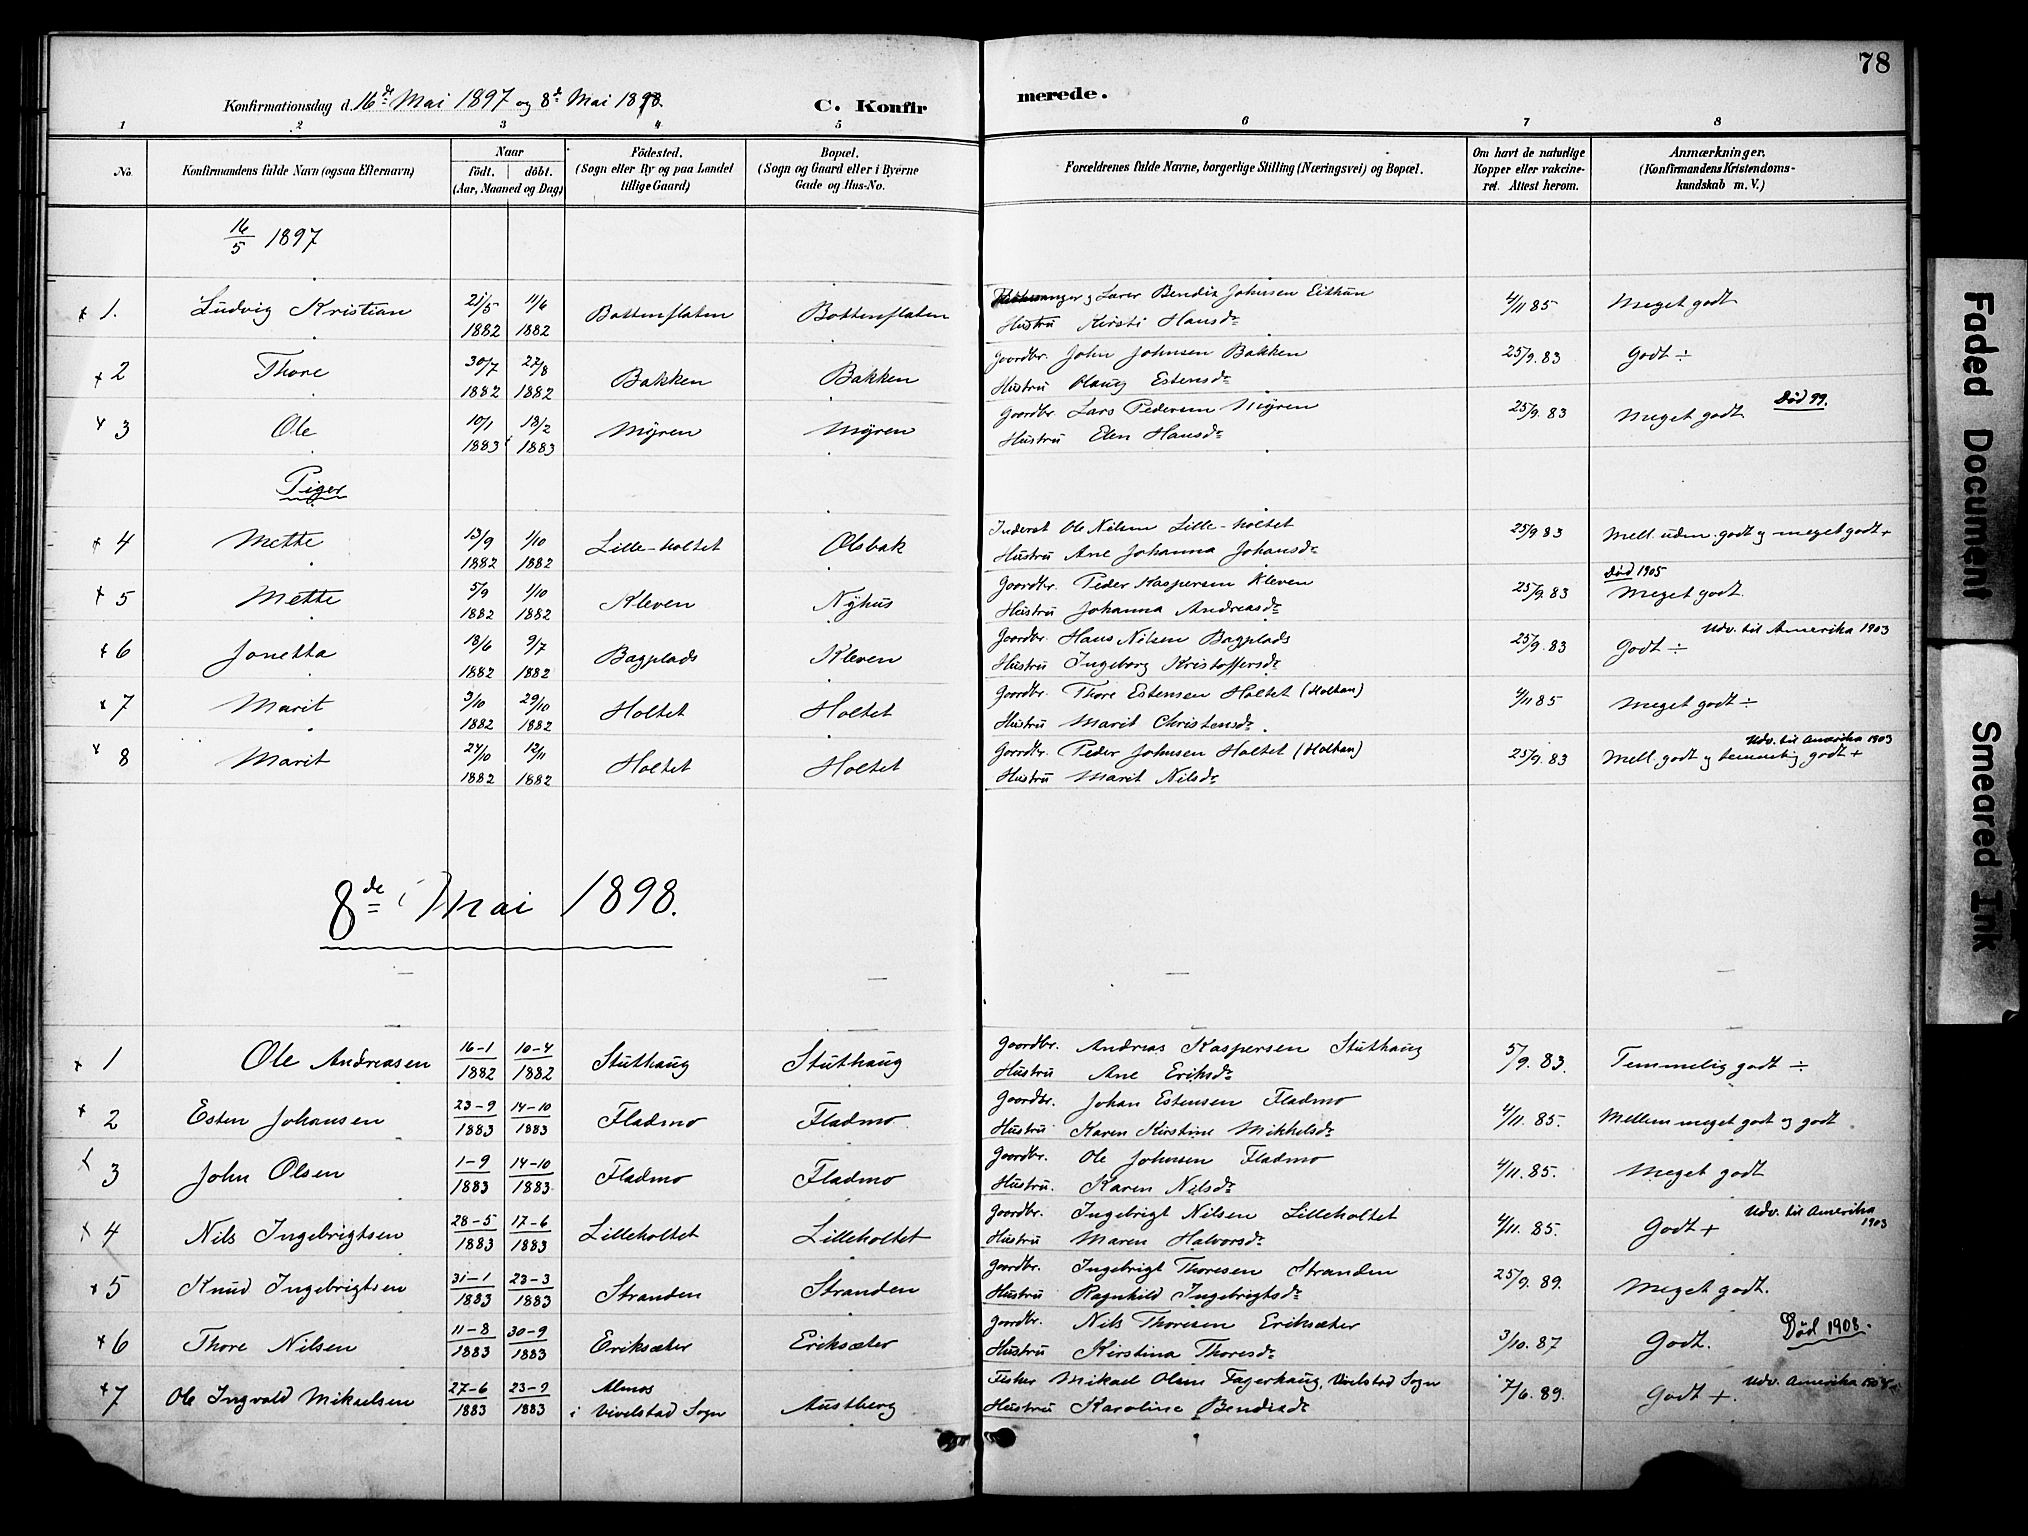 78
Konfirmationsdag d. 16de Mai 1897 og 8de Mai 1898. C. Konfirmerede.
1 2 3 4 5 6 7 8
No. Konfirmandens fulde Navn (ogsaa Efternavn) Naar født. døbt. (Aar, Maaned og Dag) Födested. (Sogn eller By og paa Landet tillige Gaard) Bopæl. (Sogn og Gaard eller i Byerne Gade og Hus-No. Forældrenes fulde Navne, borgerlige Stilling (Næringsvei) og Bopæl. Om havt de naturlige Kopper eller vakcineret. Attest herom. Anmærkninger. (Konfirmandens Kristendomskundskab m. V.)
16/5 1897
1. Ludvig Kristian 21/5 1882 11/6 1882 Bottenflaten Bottenflaten Lærer Bendix Johnsen Eithun 4/11 85 Meget godt
Hustru Kirsti Hansdr
2 Thore 30/7 1882 27/8 1882 Bakken Bakken Gaardbr. John Johnsen Bakken 25/9. 83 Godt ÷
Hustru Olaug Estensdr
3 Ole 10/1 1883 18/2 1883 Myren Myren Gaardbr. Lars Pedersen Myren 25/9. 83 Meget godt Död 99.
Hustru Elen Hansdr
Piger
4 Mette 13/9 1882 1/10 1882 Lille-holtet Olsbak Inderst Ole Nilsen Lille-holtet 25/9 83 Mell. uden. godt og meget godt +
Hustru Ane Johanna Johansdr
5 Mette 5/9 1882 1/10 1882 Kleven Nyhus Gaardbr. Peder Kaspersen Kleven 25/9. 83 Död 1905 Meget godt.
Hustru Johanna Andreasdr
6 Jonetta 18/6 1882 9/7 1882 Bagplads Kleven Gaardbr. Hans Nilsen Bagplads 25/9. 83 Godt ÷ Udv. til Amerika 1903
Hustru Ingeborg Kristoffersdr
7 Marit 3/10 1882 29/10 1882 Holtet Holtet Gaardbr. Thore Estensen Holtet (Holtan) 4/11 85 Meget godt ÷
Hustru Marit Christensdr.
8 Marit 24/10 1882 12/11 1882 Holtet Holtet Gaardbr. Peder Johnsen Holtet (Holtan) 25/9. 83 Mell. godt og temmelig godt + Udv. til Amerika 1903
Hustru Marit Nilsdr
8de Mai 1898.
1 Ole Andreasen 16-1 1882 10-4 1882 Stuthaug Stuthaug Gaardbr. Andreas Kaspersen Stuthaug 5/9. 83. Temmelig godt ÷
Hustru Ane Eriksdr
2 Esten Johansen 23-9 1883 14-10 1883 Fladmo Fladmo Gaardbr. Johan Estensen Fladmo 4/11. 85. Mellem meget godt og godt
Hustru Karen Kirstine Mikkelsdr
3 John Olsen 1-9 1883 14-10 1883 Fladmo Fladmo Gaardbr. Ole Johnsen Fladmo 4/11. 85. Meget godt
Hustru. Karen Nilsdr
4 Nils Ingebrigtsen 28-5 1883 17-6 1883 Lilleholtet Lilleholtet Gaardbr. Ingebrigt Nilsen Lilleholtet 4/11. 85. Godt + Udv. til Amerika 1903
Hustru Maren Halvorsdr
5 Knud Ingebrigtsen 31-1 1883 23-3 1883 Stranden Stranden Gaardbr. Ingebrigt Thoresen Stranden 25/9. 89. Meget godt.
Hustru Ragnhild Ingebrigtsdr
6 Thore Nilsen 11-8 1883 30-9 1883 Eriksæter Eriksæter Gaardbr. Nils Thoresen Eriksæter 3/10. 87 Godt. Död 1908.
Hustru Kirstina Thoresdr
7 Ole Ingvald Mikaelsen 27-6 1883 23-9 1883 Almos i Vivelstad Sogn Austberg Fisker Mikael Olsen Fagerhaug, Vivelstad Sogn 7/6. 89. Godt +. Udv. Amerika
Hustru Karoline Bendixdr
Faded Document
Smeared Ink